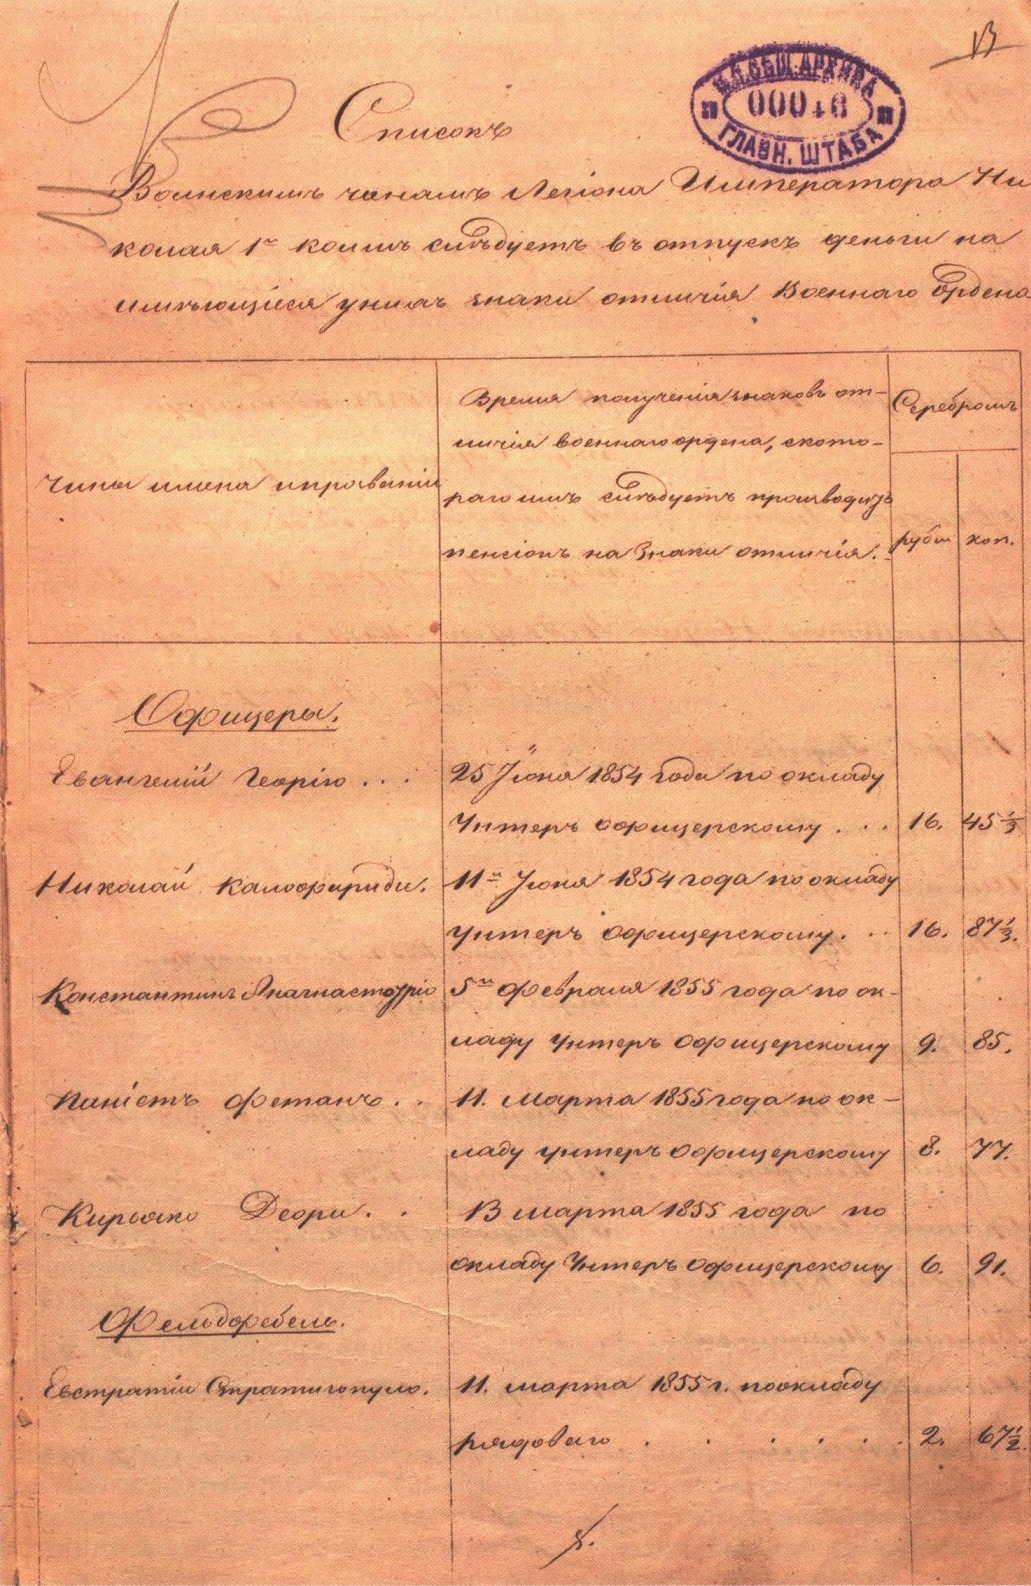 13
В.П. ОБЩ. АРХИВА
00046
ГЛАВН. ШТАБА
Списокъ
Воинскимъ чинамъ Легіона Императора Ни
колая 1го коимъ слѣдуетъ въ отпускъ деньги на
имѣющіеся у нихъ знаки отличія Военнаго Ордена
Чины имена и прозваніи
Время полученія знаковъ от-
личія военнаго ордена, с кото-
раго имъ слѣдуетъ производить
пенсіонъ на Знаки отличія.
Серебромъ
рубли
коп.
Офицеры.
Евангелій Георгіо . . .
25 Іюня 1854 года по окладу
Унтеръ офицерскому . . .
16.
45 1/3
Николай Калофариди.
11го Іюня 1854 года по окладу
унтеръ офицерскому. . .
16.
87 1/3.
Константинъ Анагностопуло
5го февраля 1855 года по ок-
ладу Унтеръ Офицерскому
9.
85.
фетанъ . .
11. Марта 1855 года по ок-
ладу унтеръ офицерскому
8.
77.
Кирьяко Деори . .
13 марта 1855 года по
окладу Унтеръ офицерскому
6.
91.
Фельдфебель.
Евстратіи Стратигопуло.
11. марта 1855 г. по окладу
рядоваго . . . . . .
2.
67 1/2.